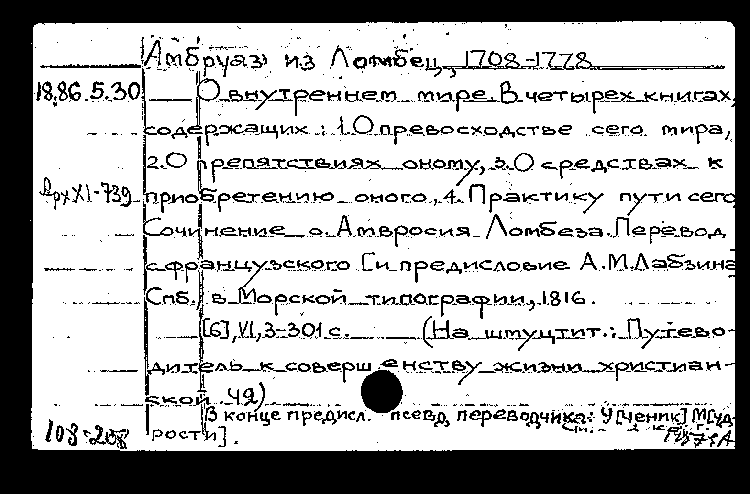 Амбруаз из Ломбец, 1708-1778
18.86.5.30 О внутреннем мире. В четырех книгах,
содержащих: 1.О превосходстве сего мира,
2.О препятствиях оному, 3.О средствах к
Арх XI-739 приобретению оного, 4. Практику пути сего
Сочинение о. Амвросия Ломбеза. Перевод
с французского [и предисловие А.М.Лабзина
Спб., в Морской типографии, 1816.
[6], VI, 3-301 с. (На шмуцтит.: Путево-
дитель к соверш енству жизни христиан-
ской. Ч2)
В конце предисл. псевд. переводчика: У[ченик] М[уд-
108-208 рости].